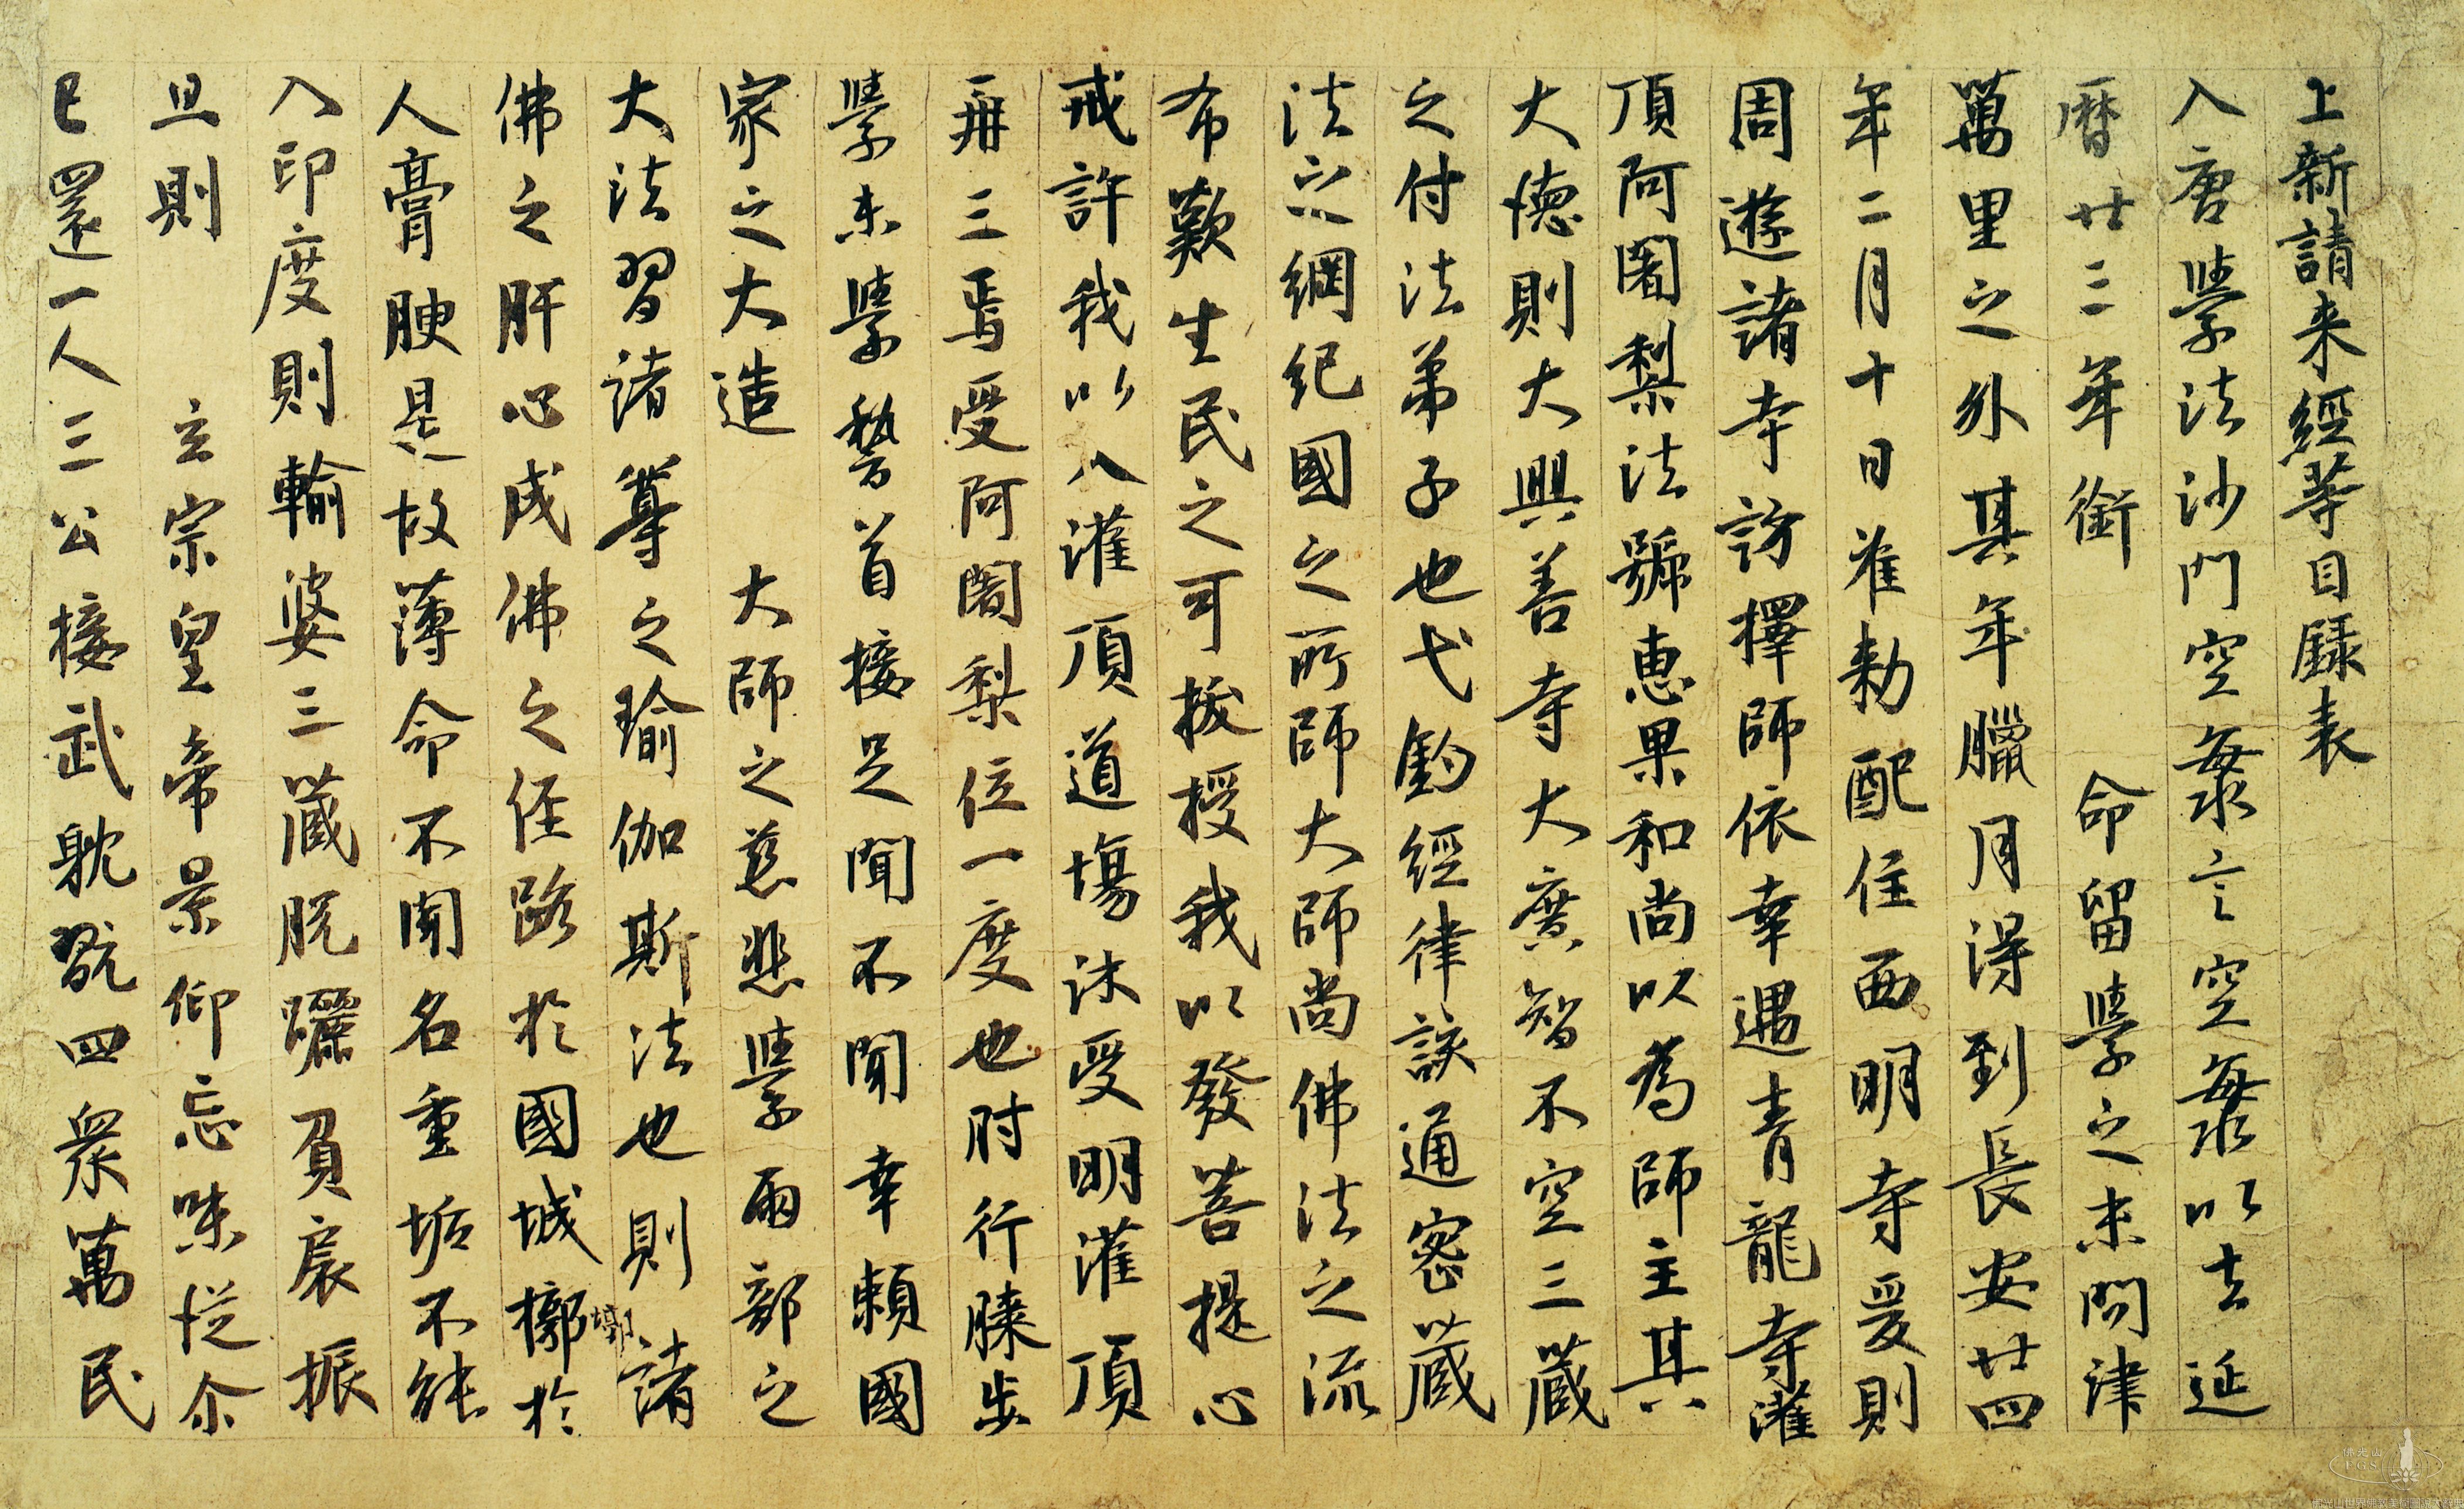 上新請来經等目録表
入唐學法沙門空海言空海以去延
暦廿三年銜　　命留學之末問津
萬里之外其年臘月得到長安廿四
年二月十日准勅配住西明寺爰則
周遊諸寺訪擇師依幸遇青龍寺灌
頂阿闍梨法號恵果和尚以為師主其
大徳則大興善寺大廣智不空三藏
之付法弟子也弋釣經律該通密藏
法之綱紀國之所師大師尚佛法之流
布歎生民之可拔授我以發菩提心
戒許我以入灌頂道場沐受明灌頂
再三焉受阿闍梨位一度也肘行膝步
學未學稽首接足聞不聞幸頼國
家之大造　大師之慈悲學兩部之
大法習諸尊之瑜伽斯法也則諸
佛之肝心成佛之径路於國城槨於
墎
人膏腴是故薄命不聞名重垢不能
入印度則輸婆三藏脱躧負扆振
旦則　　玄宗皇帝景仰忘味従尓
已還一人三公接武躭翫四衆萬民
佛光山
FGS